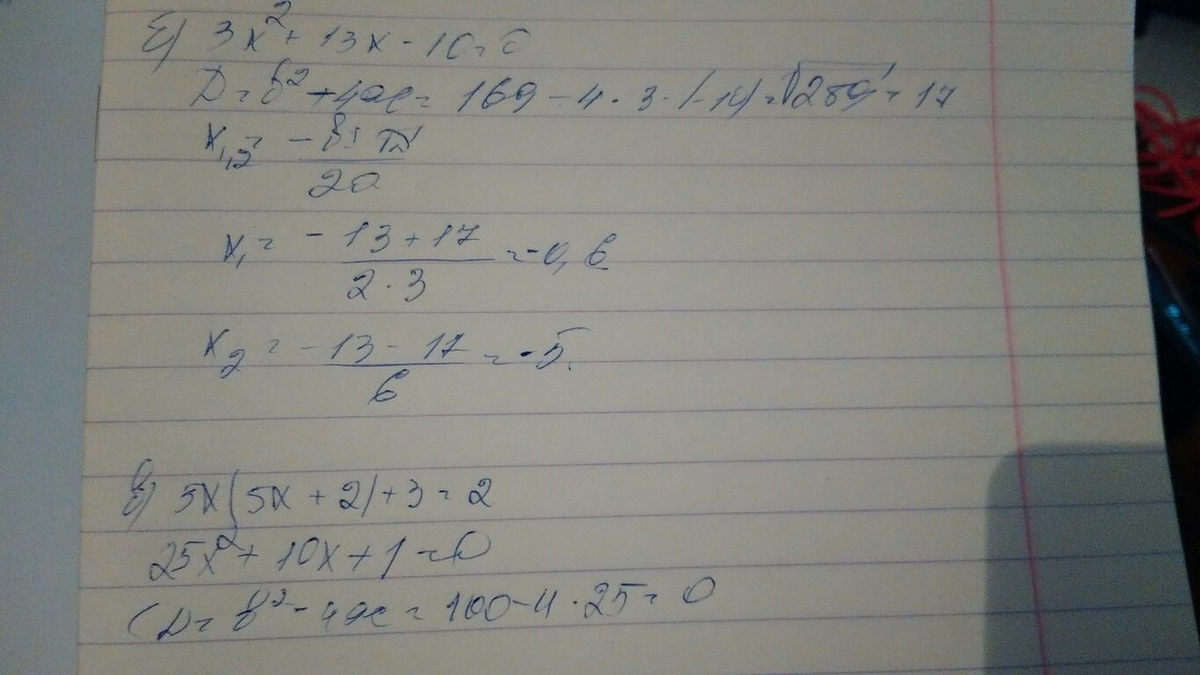 Б) 3x² + 13x - 10 = 0
D = b² + 4ac = 169 - 4 · 3 · (-10) = √289 = 17
x₁,₂ = (-b ± √D) / 2a
x₁ = (-13 + 17) / (2 · 3) = -0,6
x₂ = (-13 - 17) / 6 = -5.
5x(5x + 2) + 3 = 2
25x² + 10x + 1 = 0
D = b² - 4ac = 100 - 4 · 25 = 0